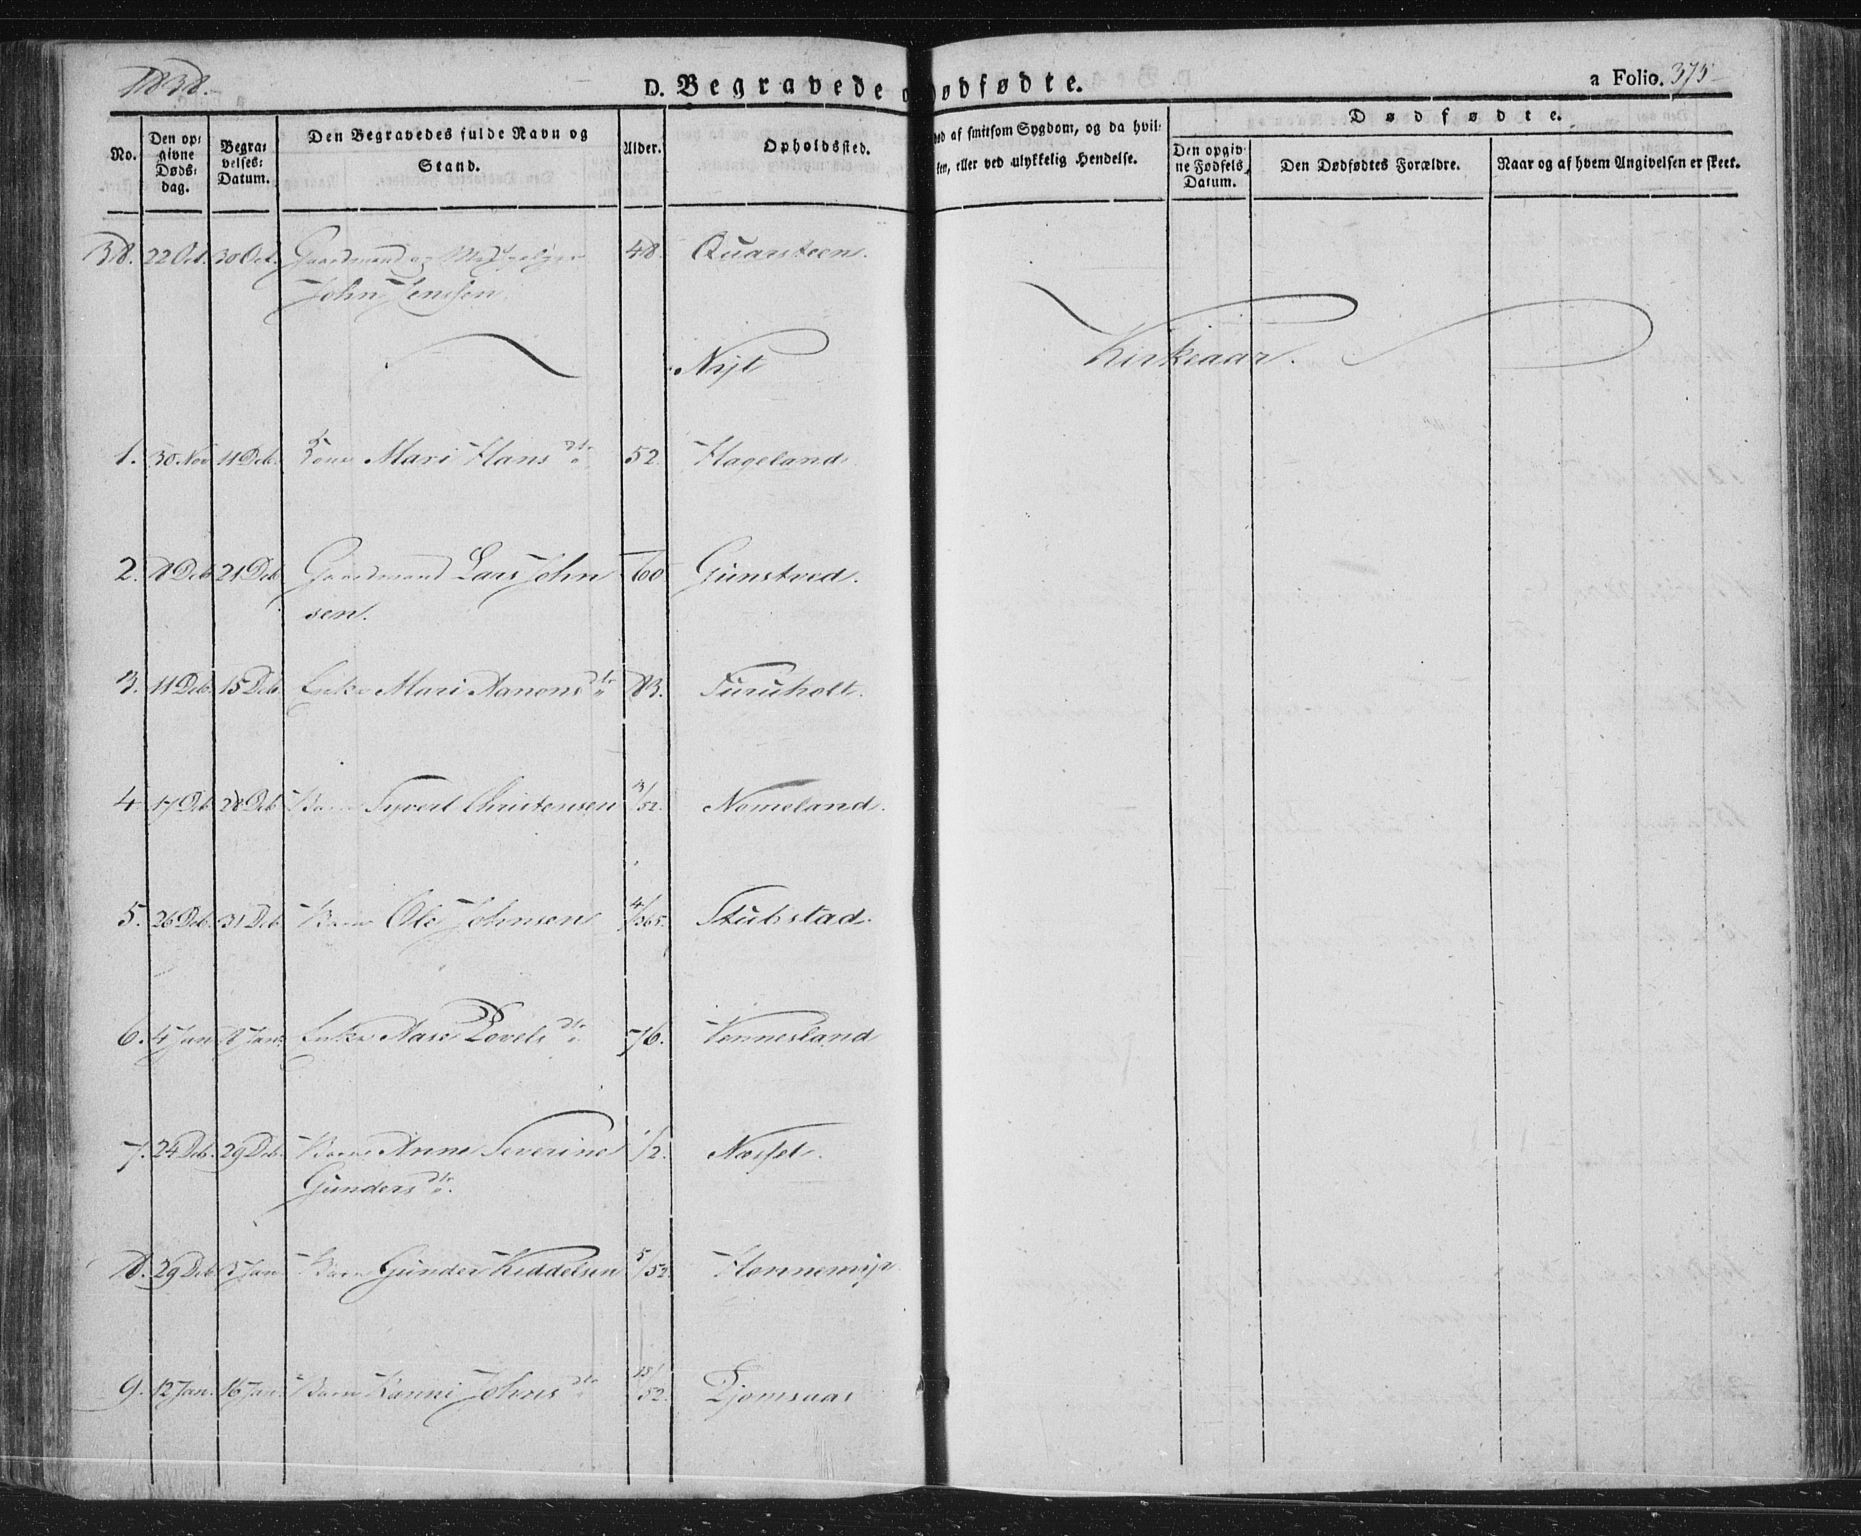 1838.
D. Begravede o Dødfødte.
a Folio. 375
No.
Den op-
givne
Døds-
dag.
Begra-
velses-
Datum.
Den Begravedes fulde Navn og
Stand.
Alder.
Opholdssted.
ved af smitsom Sygdom, og da hvil-
ken, eller ved ulykkelig Hendelse.
Dødfødte.
Den opgiv-
ne Fødsels
Datum.
Den Dødfødtes Forældre.
Naar og af hvem Angivelsen er skeet.
38. 22 Oct. 30 Oct. Gaardmand og 48. Quarsteen.
John Jenssen.
Nyt Kirkeaar.
1. 30 Nov 11 Deb. Kone Mari Hans dtr 52. Hageland.
2. 8 Deb 21 Deb Gaardmand Lars John 60 Gunstved.
sen.
3. 11 Deb. 15 Deb. Enke Mari Aanons dtr 83. Furuholt.
4. 17 Deb 28 Deb Barn Syvert Christensen 3/52. Nomeland.
5. 26 Deb. 31 Deb Barn Ole Johnsen 4/365. Stubstad.
6. 4 Jan 8 Jan. Enke Aase Povels dtr 76. Vennesland
7. 24 Deb. 29 Deb. Barn Anne Severine 1/2. Næsset.
Gunders dtr.
8. 29 Deb 3 Jan Barn Gunder Keddelsen 5/52. Honnemyr.
9. 12 Jan. 16 Jan. Barn Kanni Johns dtr 15/52. Djomsaas